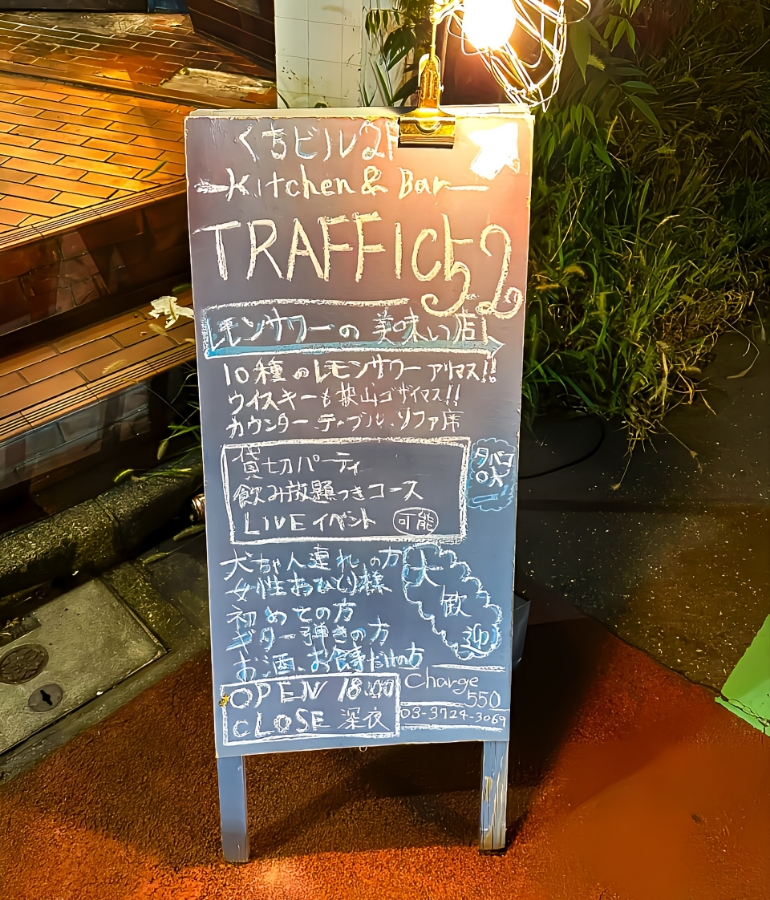 くちビル2F
Kitchen & Bar
TRAFFIC52
レモンサワーの 美味い店!
10種のレモンサワー アリマス!!
ウイスキーも 沢山ゴザイマス!!
カウンター テーブル.ソファ席
貸切パーティ
飲み放題つきコース
LIVE イベント 可能
タバコ
OK
犬ちゃん連れの方
女性おひとり様
初めての方
ギター弾きの方
お酒、お食事だけの方
大歓迎
OPEN 18:00
CLOSE 深夜
Charge
550
03-3724-3069